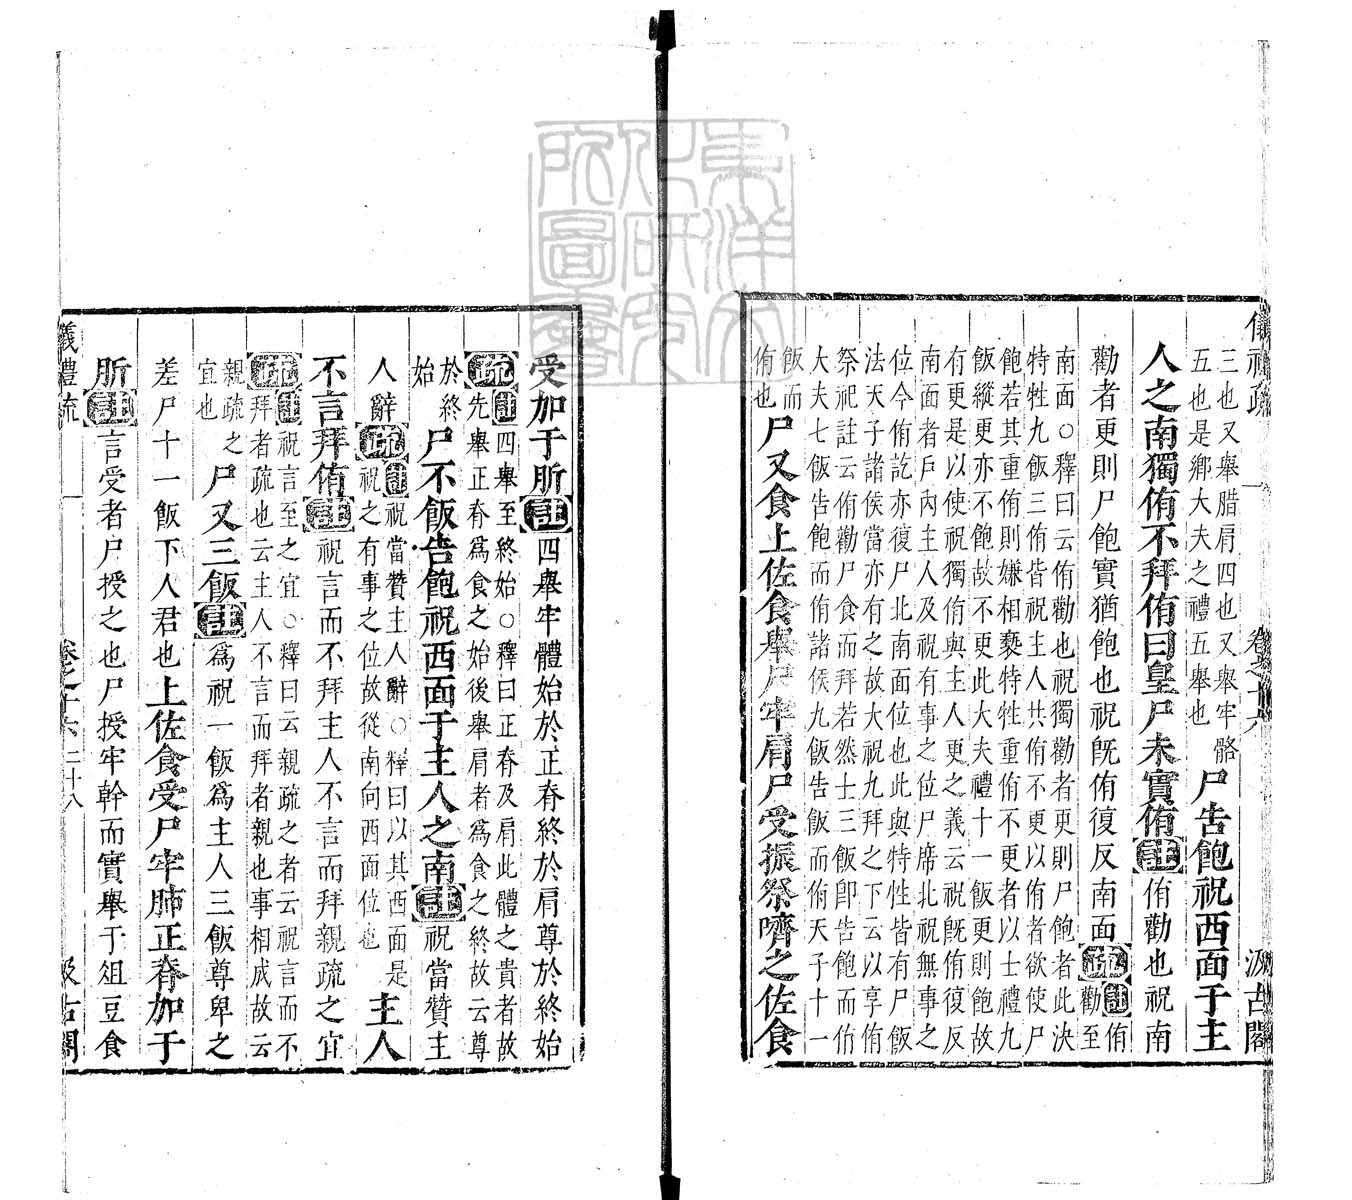 儀禮疏 卷之十六 汲古閣
三也又舉腊肩四也又舉牢骼
五也是鄉大夫之禮五舉也
尸告飽祝西面于主
人之南獨侑不拜侑曰皇尸未實侑註侑勸也祝南
勸者更則尸飽實猶飽也祝既侑復反南面疏註侑
勸至
南面○釋曰云侑勸也祝獨勸者更則尸飽者此決
特牲九飯三侑皆祝主人共侑不更以侑者欲使尸
飽若其重侑則嫌相褻特牲重侑不更者以士禮九
飯縱更亦不飽故不更此大夫禮十一飯更則飽故
有更是以使祝獨侑與主人更之義云祝既侑復反
南面者戶內主人及祝有事之位尸席北祝無事之
位今侑訖亦復尸北南面位也此與特牲皆有尸飯
法天子諸侯當亦有之故大祝九拜之下云以享侑
祭祀註云侑勸尸食而拜若然士三飯卽告飽而侑
大夫七飯告飽而侑諸侯九飯告飯而侑天子十一
飯而
侑也
尸又食上佐食舉尸牢肩尸受振祭嚌之佐食
受加于肵註四舉牢體始於正脊終於肩尊於終始
疏註四舉至終始○釋曰正脊及肩此體之貴者故
先舉正脊爲食之始後舉肩者爲食之終故云尊
於終
始
尸不飯告飽祝西面于主人之南註祝當贊主
人辭疏註祝當贊主人辭○釋曰以其西面是
祝之有事之位故從南向西面位也
主人
不言拜侑註祝言而不拜主人不言而拜親疏之宜
疏註祝言至之宜○釋曰云親疏之者云祝言而不
拜者疏也云主人不言而拜者親也事相成故云
親疏之
宜也
尸又三飯註爲祝一飯爲主人三飯尊卑之
差尸十一飯下人君也上佐食受尸牢肺正脊加于
肵註言受者尸授之也尸授牢幹而實舉于俎豆食
儀禮疏 卷之十六 二十八 汲古閣